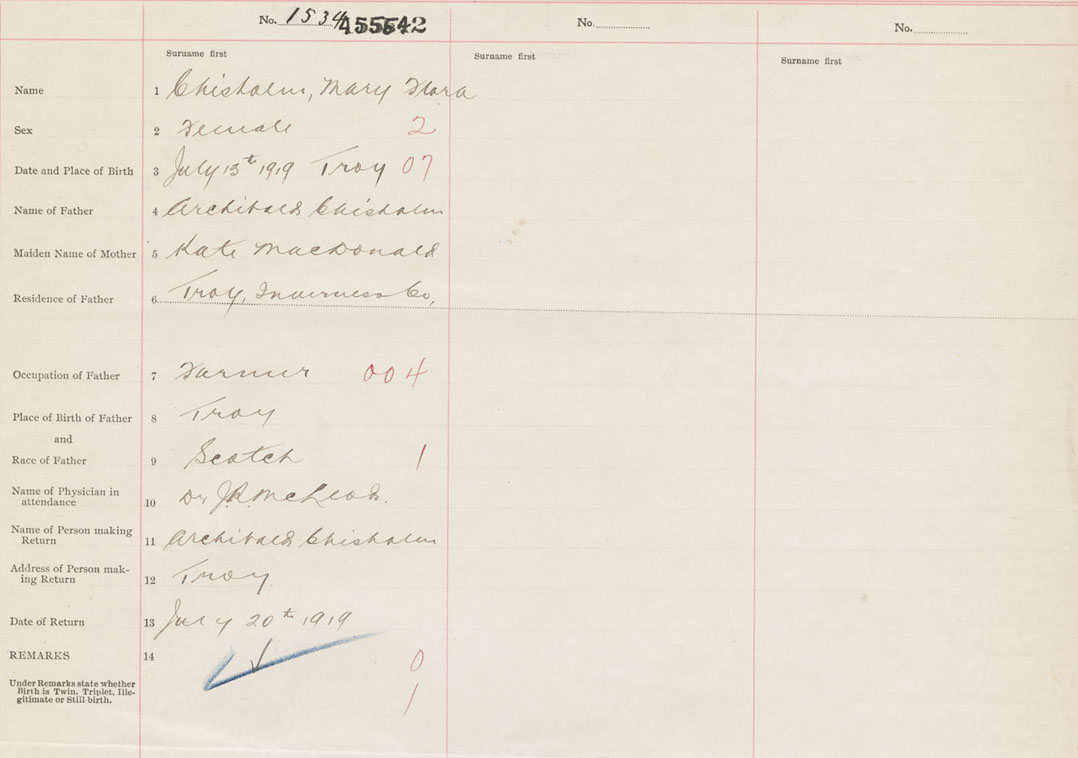 No. 1534 455542 No. No.
Surname first Surname first Surname first
Name 1 Chisholm, Mary Flora
Sex 2 Female 2
Date and Place of Birth 3 July 13th 1919 Troy 07
Name of Father 4 Archibald Chisholm
Maiden Name of Mother 5 Kate MacDonald
Residence of Father 6 Troy, Inverness Co,
Occupation of Father 7 Farmer 004
Place of Birth of Father 8 Troy
and
Race of Father 9 Scotch 1
Name of Physician in
attendance 10 Dr J.R. McLeod.
Name of Person making
Return 11 Archibald Chisholm
Address of Person mak-
ing Return 12 Troy.
Date of Return 13 July 20th 1919
REMARKS 14 0
Under Remarks state whether
Birth is Twin, Triplet, Ille-
gitimate or Still-birth. 1